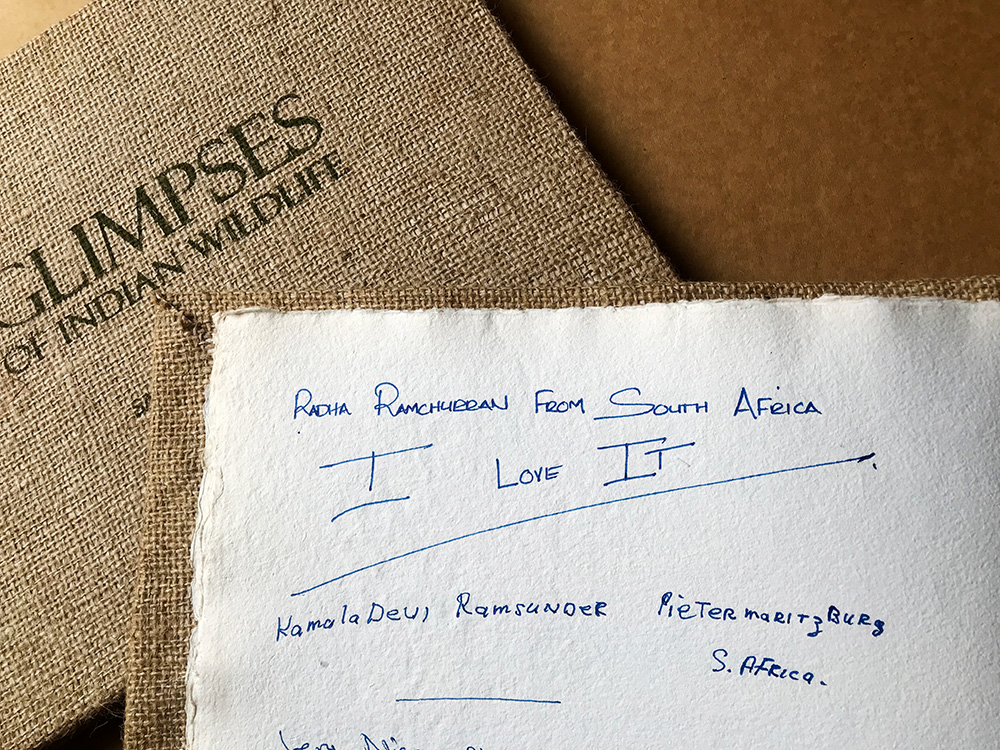 GLIMPSES
OF INDIAN WILDLIFE
RADHA RAMCHURRAN FROM SOUTH AFRICA
I LOVE IT
Kamala Devi Ramsunder Pietermaritzburg
S. Africa.